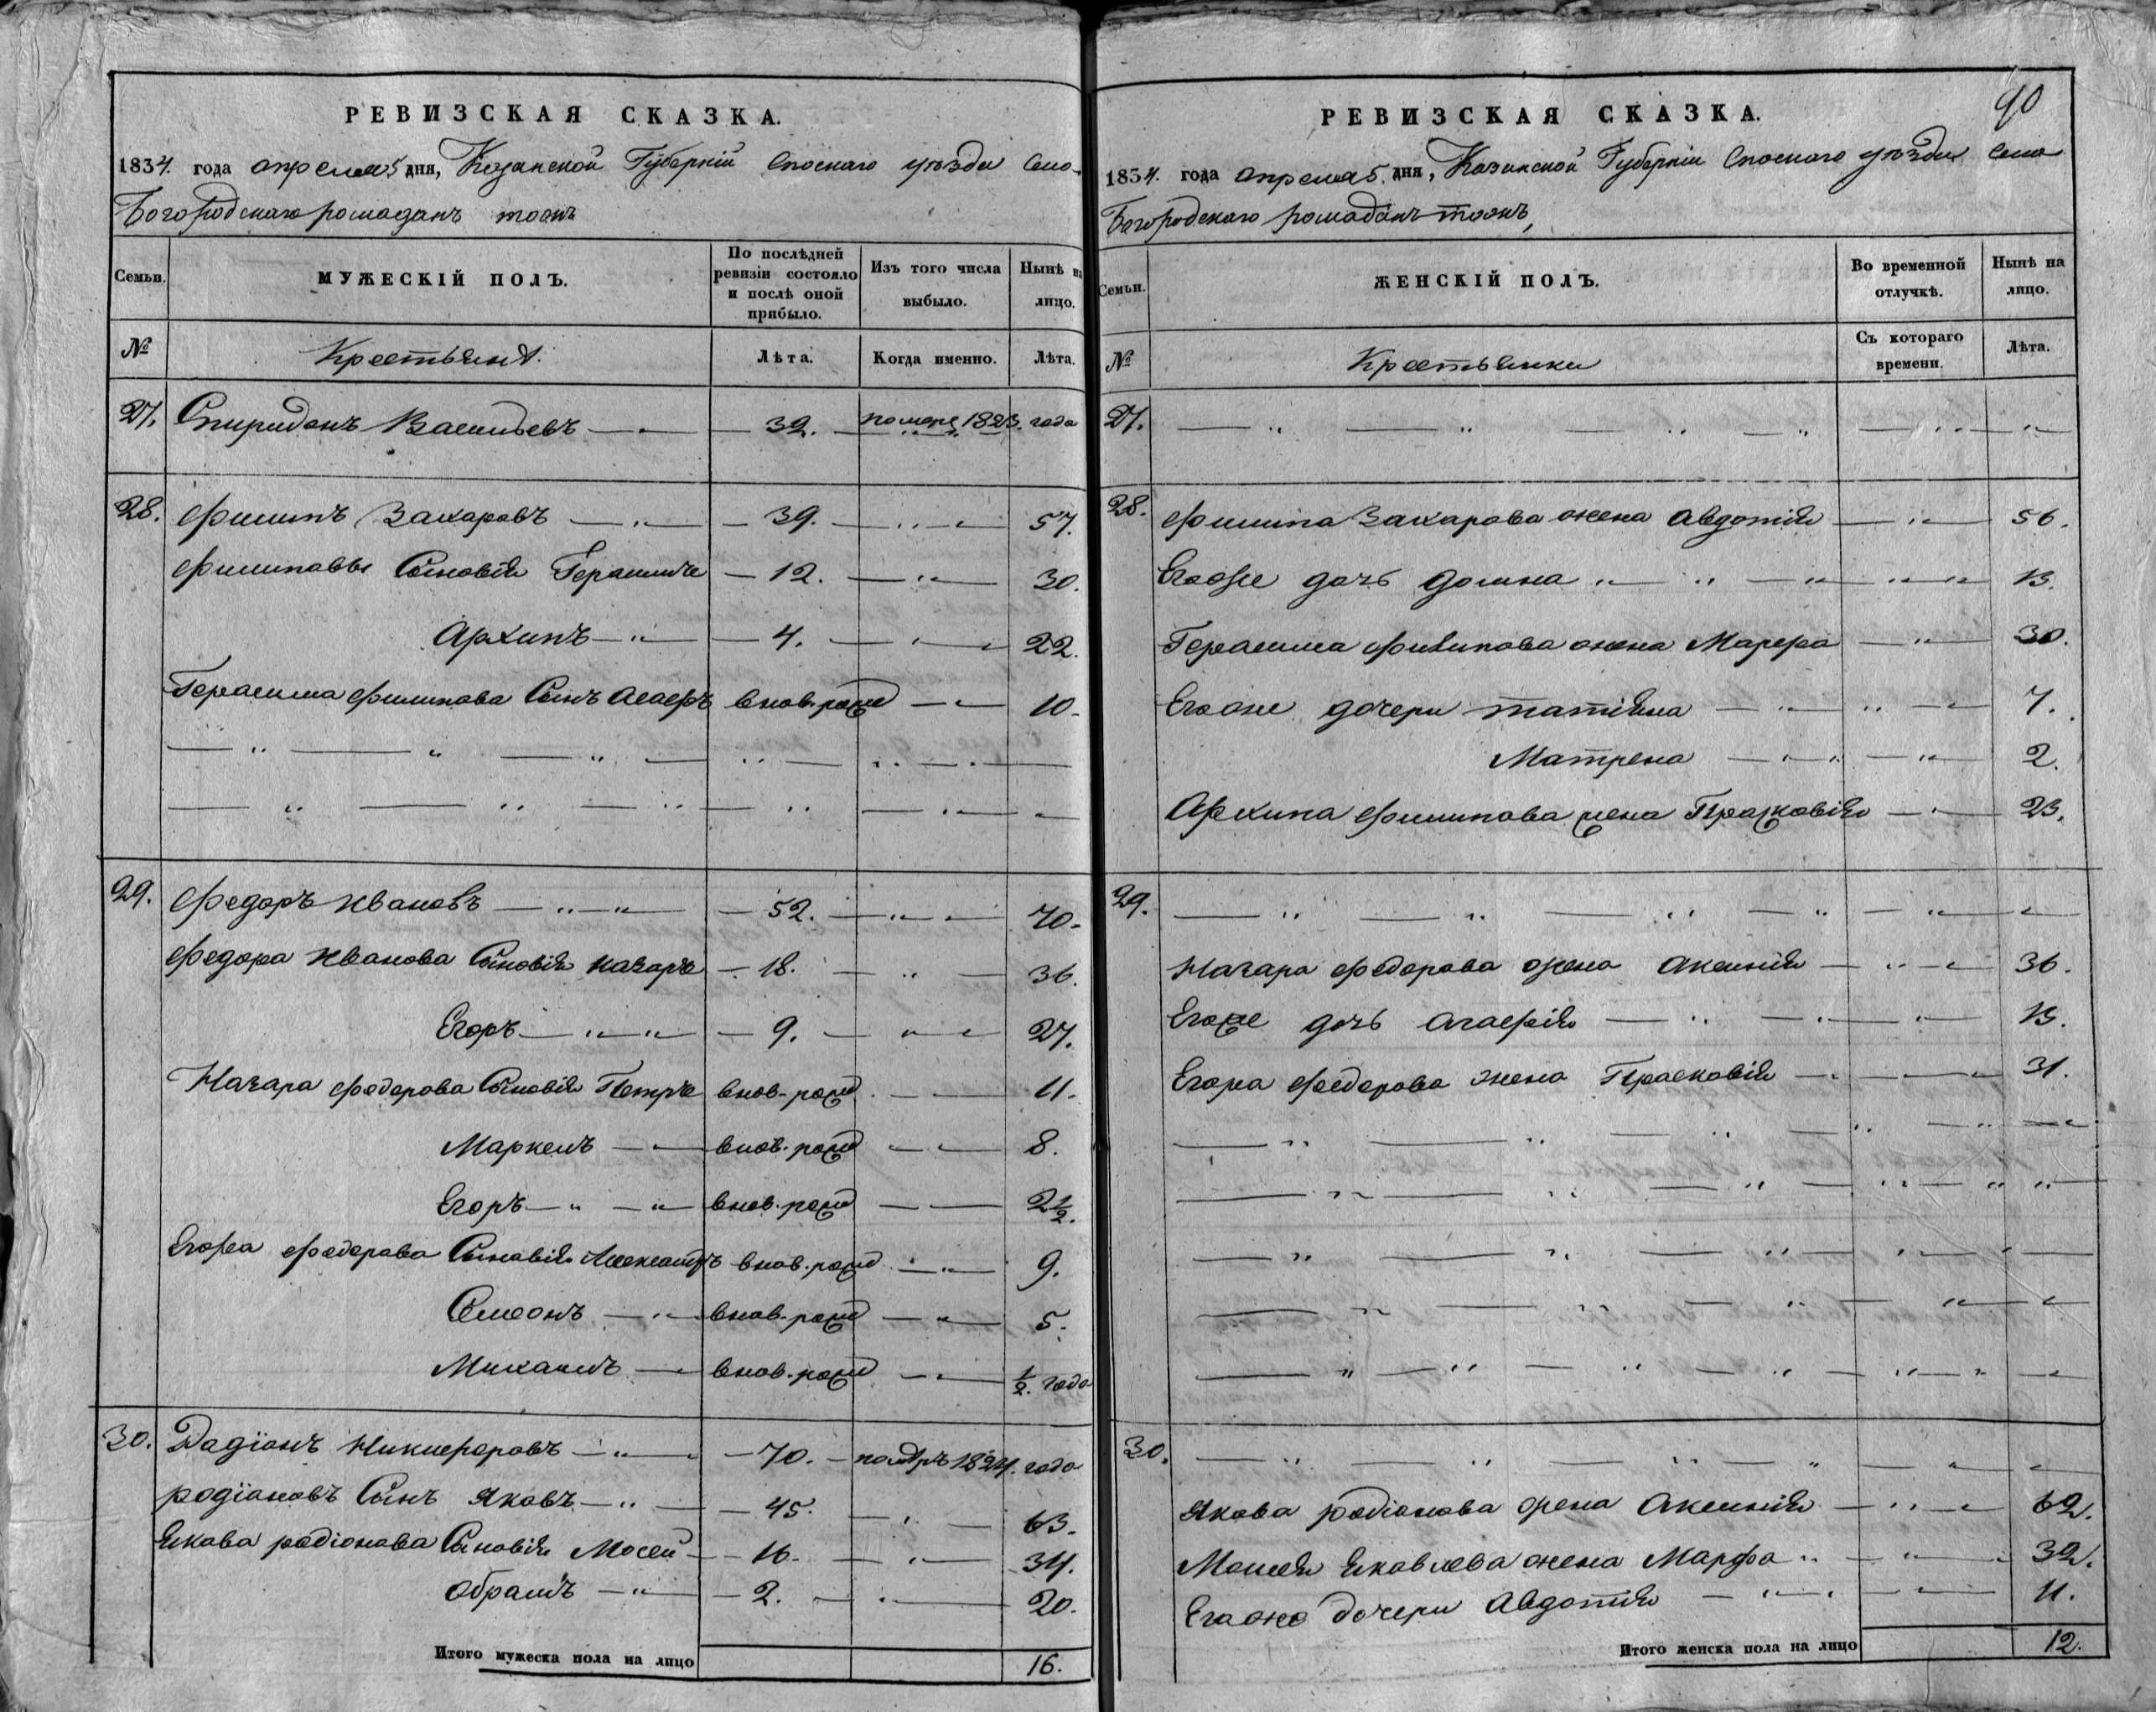 РЕВИЗСКАЯ СКАЗКА.
1834. года апреля 5 дня, Казанской Губерніи Спаскаго уѣзда Села
Богородскаго ромаданъ тожъ
Семьи.
МУЖЕСКІЙ ПОЛЪ.
По послѣдней ревизіи состояло и послѣ оной прибыло.
Изъ того числа выбыло.
Нынѣ на лицо.
№
Крестьяня.
Лѣта.
Когда именно.
Лѣта.
27. Спиридонъ Васильевъ 32. помере 1823. года
28. Филипъ Захаровъ 39. 57.
Филиповы Сыновія Герасимъ 12. 30.
Архипъ 4. 22.
Герасима Филипова Сынъ внов. рожд 10.
29. Федоръ Ивановъ 52. 70.
Федора Иванова Сыновія Назаръ 18. 36.
Егоръ 9. 27.
Назара Федорова Сыновія Петръ внов. рожд. 11.
Маркелъ внов. рожд 8.
Егоръ внов. рожд 2 1/2.
Егора Федорова Сыновія Александръ внов. рожд 9.
Семонъ внов. рожд 5.
Михаилъ внов. рожд 1/2. года
30. Никифоровъ 70. 1824. года
родіоновъ Сынъ Яковъ 45. 63.
Якова родіонова Сыновія Мосей 16. 34.
Обрамъ 2. 20.
Итого мужеска пола на лицо 16.
90
РЕВИЗСКАЯ СКАЗКА.
1834. года апреля 5. дня, Казанской Губерніи Спаскаго уѣзда Села
Богородскаго ромаданъ тожъ,
Семьи.
ЖЕНСКІЙ ПОЛЪ.
Во временной отлучкѣ.
Нынѣ на лицо.
№
Крестьянки
Съ котораго времени.
Лѣта.
27.
28. Филипа Захарова жена Авдотія 56.
Егоже дочь Домна 13.
Герасима Филипова жена Марфа 30.
Егоже дочери татіяна 7.
Матрена 2.
Архипа Филипова жена Прасковія 23.
29.
Назара Федорова жена Аксинія 36.
Егоже дочь Агафія 13.
Егора Федорова жена Прасковія 31.
30.
Якова родіонова жена Аксинія 62.
Мосея Яковлева жена Марфа 32.
Егаже дочери Авдотія 11.
Итого женска пола на лицо 12.